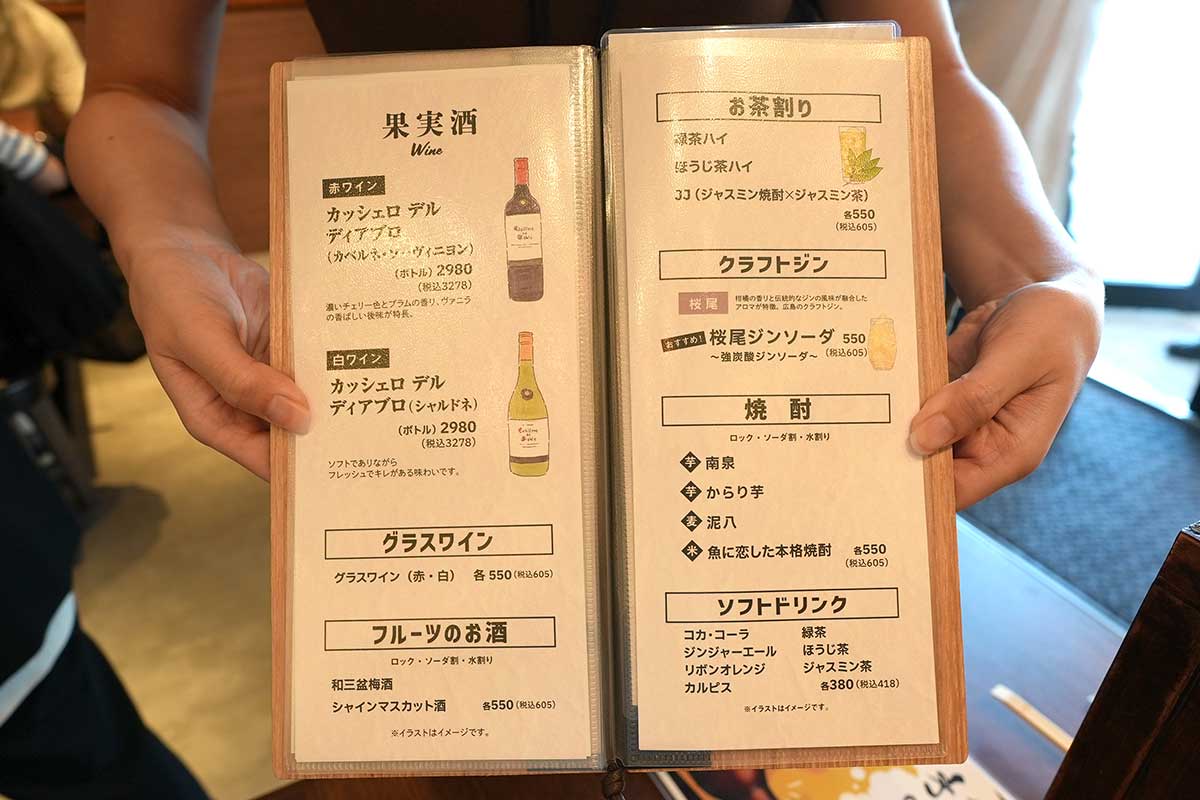 果実酒
Wine
赤ワイン
カッシェロ デル
ディアブロ
(カベルネ・ソーヴィニヨン)
(ボトル) 2980
(税込3278)
濃いチェリー色とプラムの香り、ヴァニラ
の香ばしい後味が特長。
白ワイン
カッシェロ デル
ディアブロ(シャルドネ)
(ボトル) 2980
(税込3278)
ソフトでありながら
フレッシュでキレがある味わいです。
グラスワイン
グラスワイン (赤・白) 各550(税込605)
フルーツのお酒
ロック・ソーダ割・水割り
和三盆梅酒
シャインマスカット酒 各550(税込605)
※イラストはイメージです。
お茶割り
緑茶ハイ
ほうじ茶ハイ
JJ (ジャスミン焼酎×ジャスミン茶)
各550
(税込605)
クラフトジン
桜尾
柑橘の香りと伝統的なジンの風味が融合した
アロマが特徴。広島のクラフトジン。
おすすめ! 桜尾ジンソーダ 550
～強炭酸ジンソーダ～ (税込605)
焼酎
ロック・ソーダ割・水割り
芋 南泉
芋 からり芋
麦 泥八
米 魚に恋した本格焼酎 各550
(税込605)
ソフトドリンク
コカ・コーラ 緑茶
ジンジャーエール ほうじ茶
リボンオレンジ ジャスミン茶
カルピス 各380(税込418)
※イラストはイメージです。